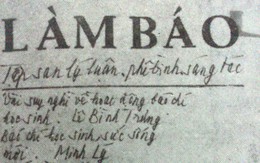 LÀM BÁO
Tập san lý luận, phê bình, sáng tác
Vài suy nghĩ về hoạt động báo chí
học sinh. Lê Bình Trung
Báo chí học sinh sức sống
mới. Minh Lý